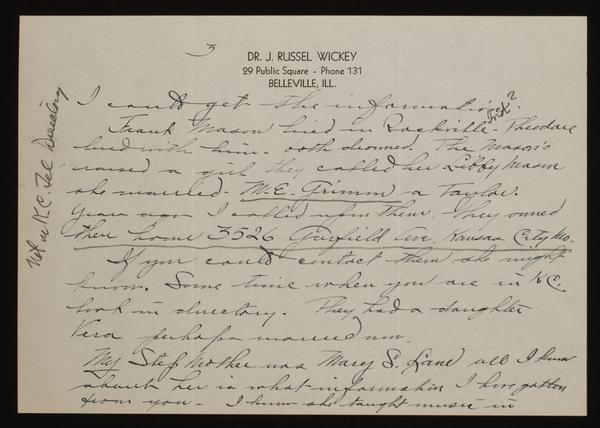 3
DR. J. RUSSEL WICKEY
29 Public Square - Phone 131
BELLEVILLE, ILL.
Not in K.C. Tel Directory
I could get the information.
Frank Mason lived in Rockville Theodore
lived with him - both drowned. The Mason's
raised a girl they called her Libby Mason
she married - M.E. Grimm a Taylor.
Years ago I called upon them, they owned
their home 3526 Garfield Ave, Kansas City, Mo.
If you could contact them she might
know. Some time when you are in K.C.
look in directory. They had a daughter
Vera perhaps married now.
My Step Mother was Mary S. Lane all I know
about her is what information I have gotten
from you - I know she taught music in